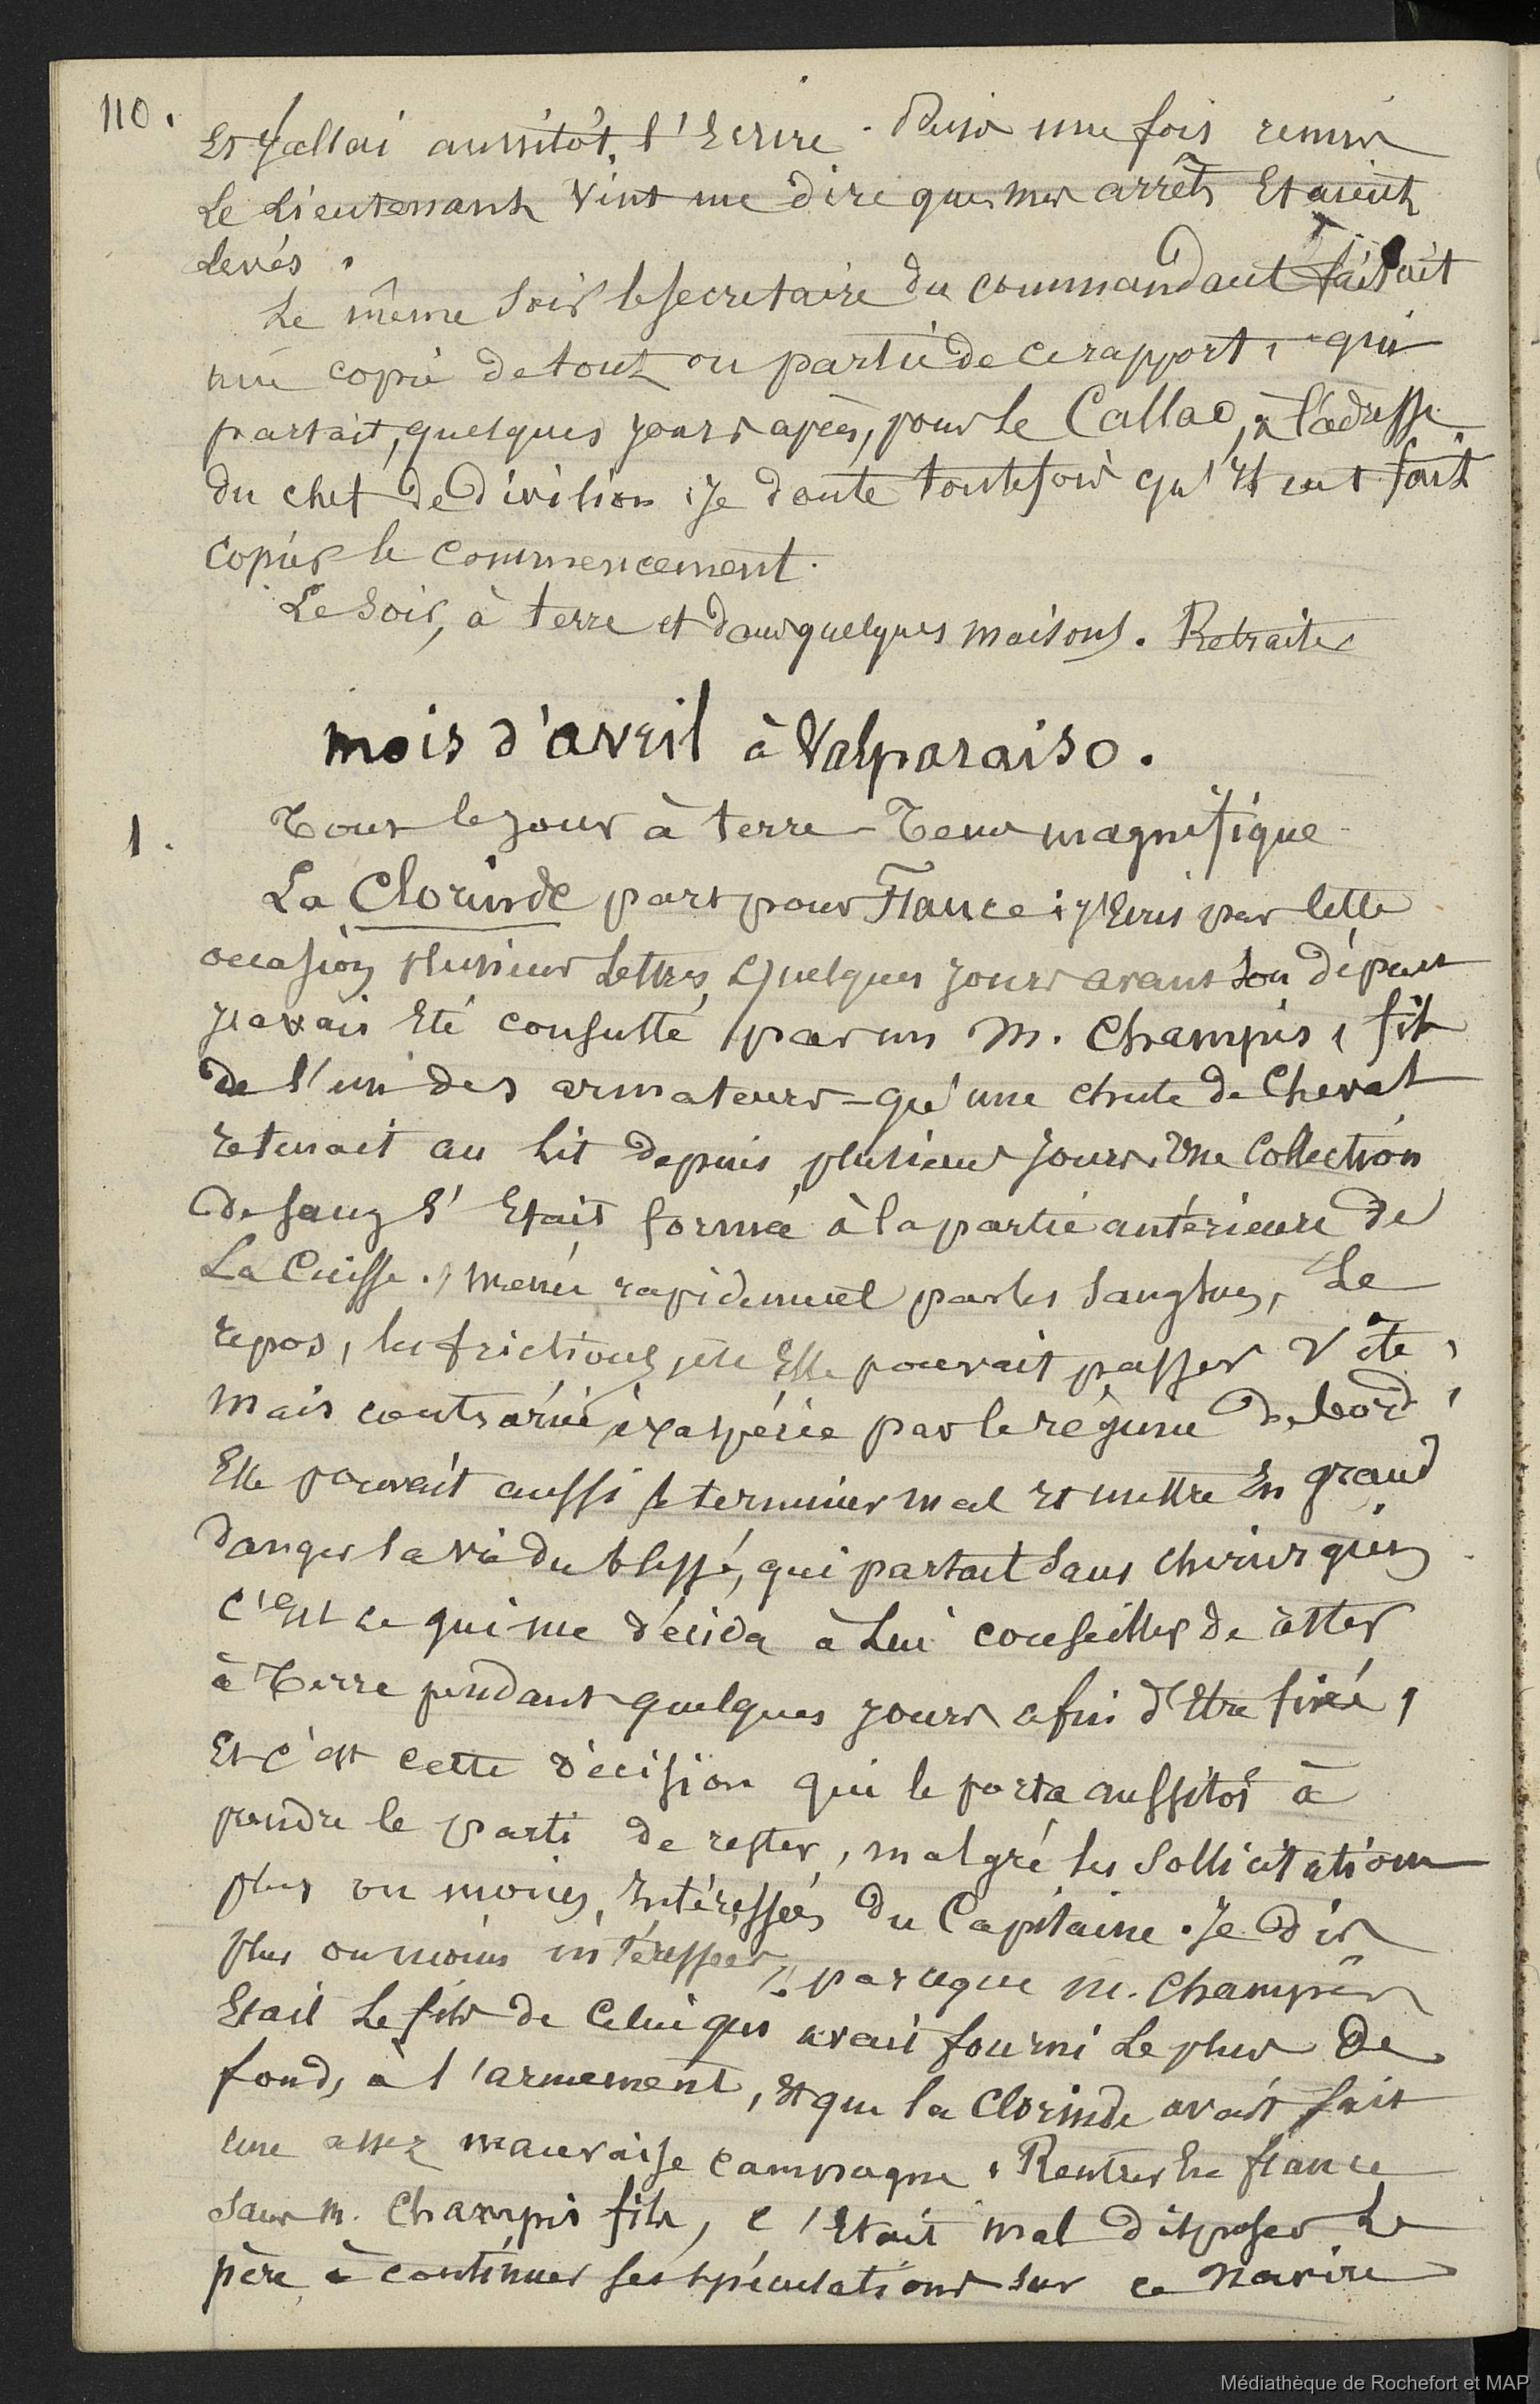 110.
Et j'allai aussitôt l'Ecrire. Puis une fois remis
Le Lieutenant vint me dire que mes arrêts Etaient
Levés.
Le même Soir le secretaire du commandant faisait
une copie de tout ou partie de ce rapport, qui
partait, quelques jours après, pour le Callao, à l'adresse
du chef de division. Je doute toutefois qu'il eut fait
copier le commencement.
Le Soir, à terre et dans quelques maisons. Retraite
mois d'avril à Valparaiso.
1.
Tout le jour à terre - Tems magnifique
La Clorinde part pour France ; j'Ecris par cette
occasion plusieurs Lettres. Quelques jours avant son départ
j'avais Eté consulté par un M. Champis, fils
de l'un des armateurs - qu'une chute de Cheval
retenait au Lit depuis plusieurs jours. Une Collection
de sang s'Etait formée à la partie antérieure de
La Cuisse. Menée rapidement par les Sangsues, Le
repos, les frictions, etc Elle pouvait passer Vite,
Mais contrariée, exaspérée par le régime de bord,
Elle pouvait aussi se terminer mal et mettre En grand
danger la vie du blessé, qui partait sans chirurgien
C'Est ce qui me décida à Lui conseiller de rester
à Terre pendant quelques jours afin d'Etre fixé,
Et c'est cette décision qui le porta aussitôt à
prendre le parti de rester, malgré les Sollicitations
plus ou moins Intéressées du Capitaine. Je dis
plus ou moins intéressées, parceque M. Champis
Etait Le fils de Celui qui avait fourni Le plus de
fonds à l'armement, Et que la Clorinde avait fait
une assez mauvaise campagne. Rentrer En france
Sans M. Champis fils, c'Etait mal disposer Le
père à continuer ses spéculations sur ce Navire
Médiathèque de Rochefort et MAP